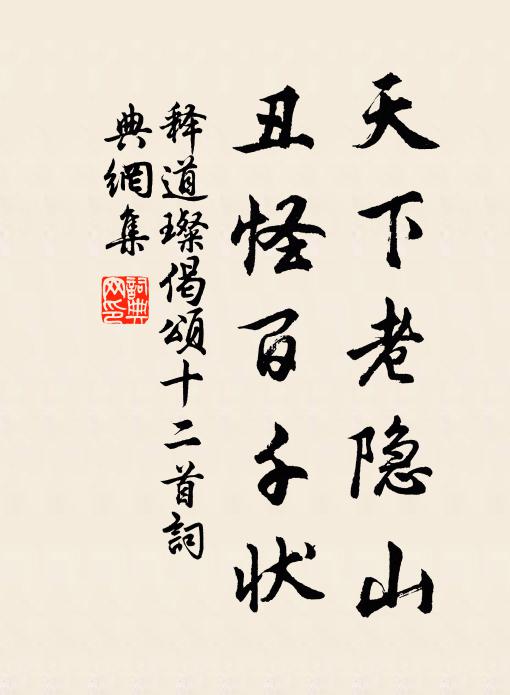 天下老隐山
丑怪百千状
释道璨偈頌十二首詞
典網集
詞典
网印